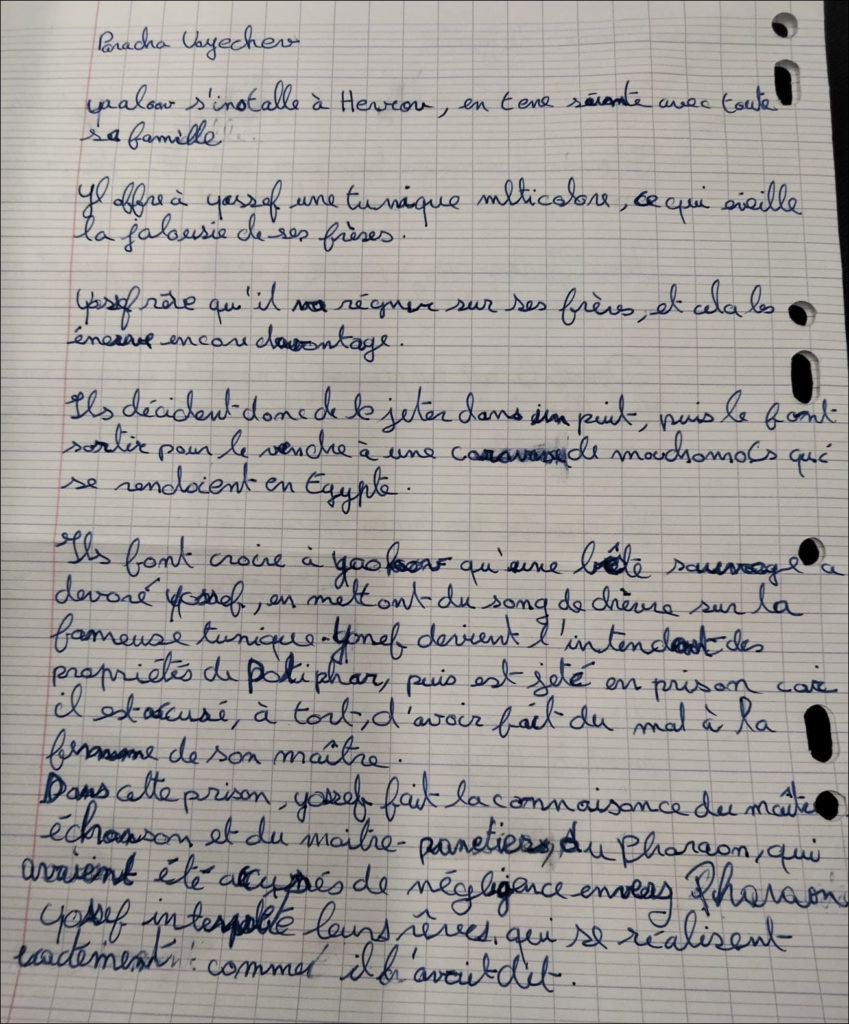 Paracha Vayechev
yaakov s'installe à Hevron, en terre sainte avec toute
sa famille
Il offre à yossef une tunique mlticolore, ce qui éveille
la jalousie de ses frères.
Yossef rêve qu'il va régner sur ses frères, et cela les
énerve encore davantage.
Ils décident donc de le jeter dans un puit, puis le font
sortir pour le vendre à une caravane de marchands qui
se rendaient en Egypte.
Ils font croire à yaakov qu'une bête sauvage a
devoré yossef, en mettant du sang de chèvre sur la
fameuse tunique. Yossef devient l'intendant des
propriétés de Potiphar, puis est jeté en prison car
il est accusé, à tort, d'avoir fait du mal à la
femme de son maître.
Dans cette prison, yossef fait la connaisance du maître
échanson et du maitre-panetier, du Pharaon, qui
avaient été accusés de négligence envers Pharaon
yossef interpreté leurs rêves, qui se réalisent
exactement comme il l'avait dit.